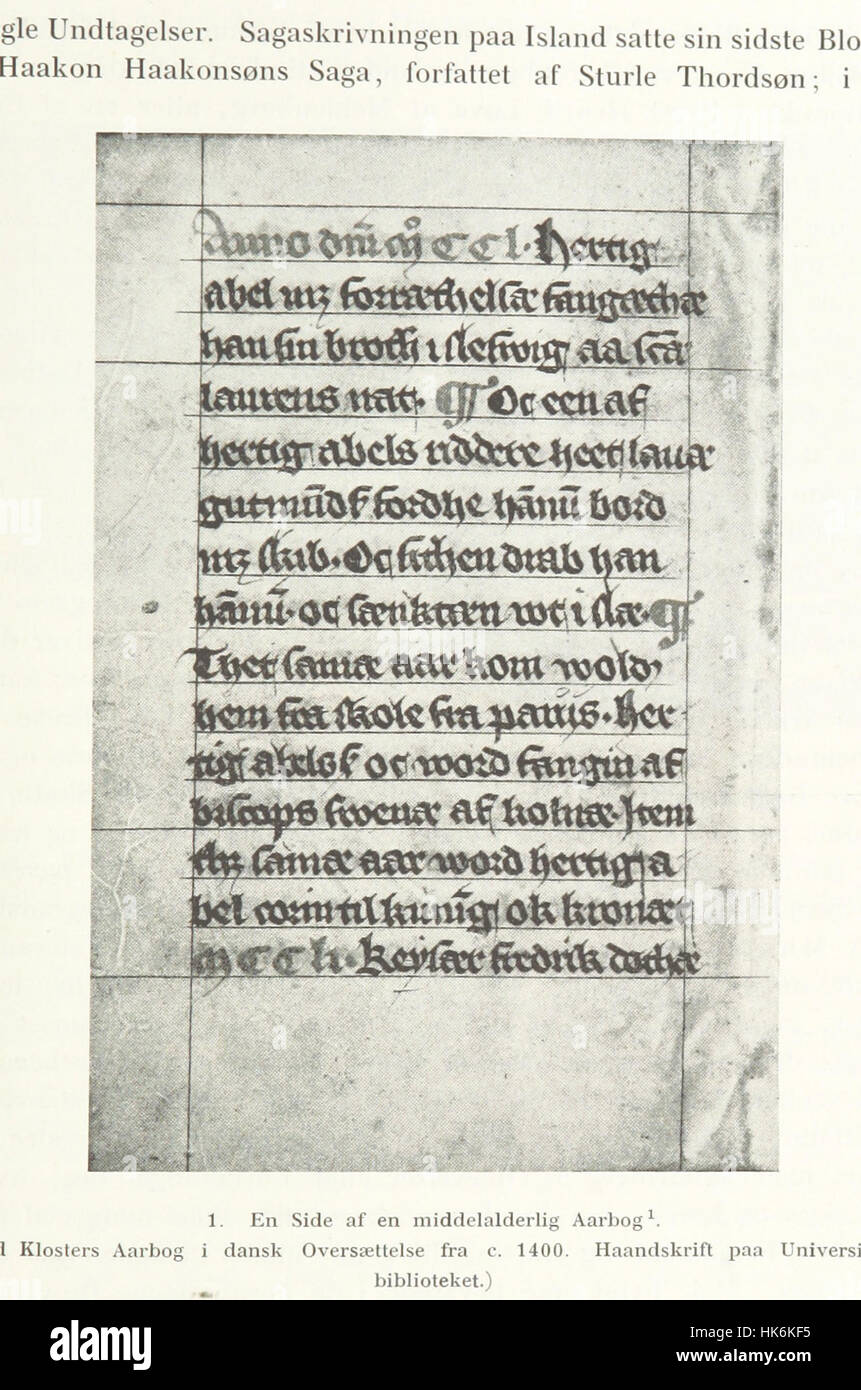 gle Undtagelser. Sagaskrivningen paa Island satte sin sidste Blo
Haakon Haakonsøns Saga, forfattet af Sturle Thordsøn; i
Anno dnı mº CC l. Hertig
abel mz forræthelsæ fangæthæ
han sin broth i sleswig aa scā
laurens nat. ¶ Oc een af
hertig abels riddere heet lauæ
gutmūds fordhe hānū bord
mz skib. Oc sithen drab han
hānū. oc sænktæn wt i slæ. ¶
Thet samæ aar kom wold
hem fra skole fra pariis. Her
tig abels oc word fangin af
biscops swenæ af kolnæ. Item
thz samæ aar word hertig a
bel corin til kunūg ok kronæt
m CC li. Keysær fredrik dothæ
1. En Side af en middelalderlig Aarbog¹.
d Klosters Aarbog i dansk Oversættelse fra c. 1400. Haandskrift paa Universi
biblioteket.)
alamy
Image ID: HK6KF5
www.alamy.com